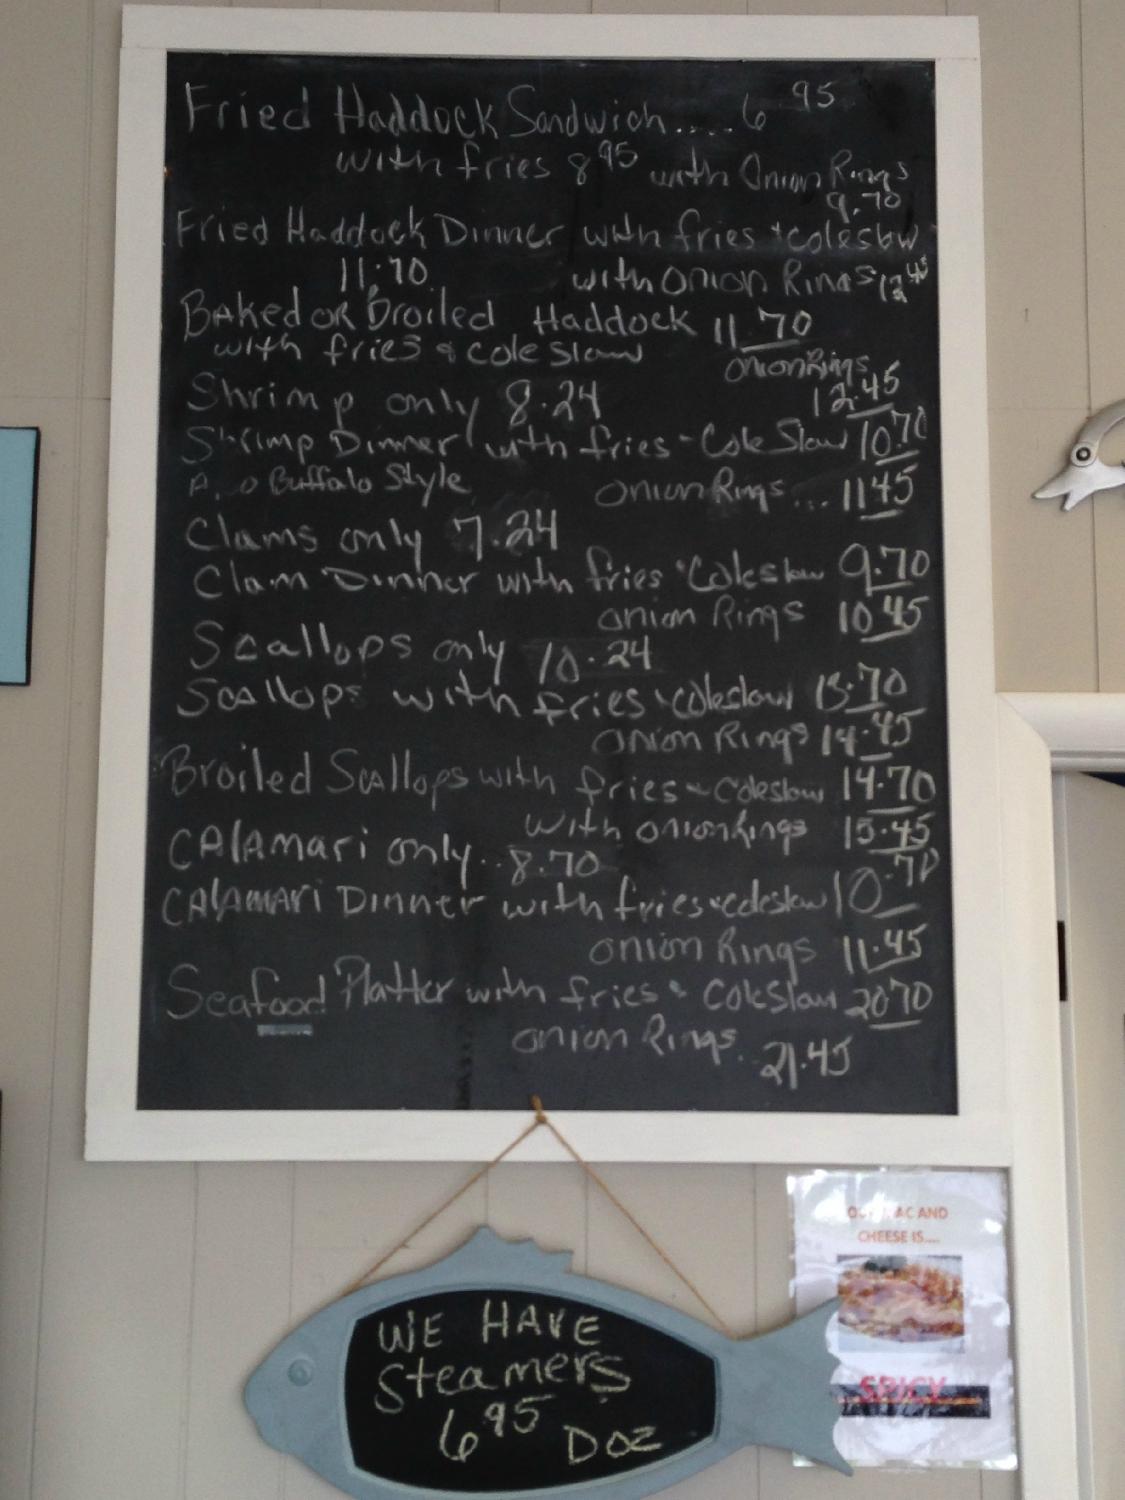 Fried Haddock Sandwich.... 6 95
with fries 8 95 with Onion Rings
9.70
Fried Haddock Dinner with fries + coleslaw
11.70 with Onion Rings 12 45
Baked or Broiled Haddock 11 70
with fries & cole slaw onion Rings
12.45
Shrimp only 8.24
Shrimp Dinner with fries - Cole Slaw 10.70
Buffalo Style Onion Rings... 11 45
Clams only 7.24
Clam Dinner with fries Coleslaw 9.70
onion Rings 10 45
Scallops only 10.24
Scallops with fries coleslaw 13.70
Onion Rings 14.45
Broiled Scallops with fries coleslaw 14.70
with onion Rings 15.45
Calamari only.. 8.70
Calamari Dinner with fries coleslaw 10.70
onion Rings 11.45
Seafood Platter with fries & Cole Slaw 20 70
onion Rings.. 21.45
WE HAVE
Steamers
6 95 Doz
MAC AND
CHEESE IS....
SPICY